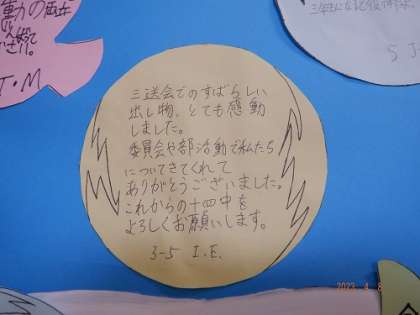 動の
T・M
S J
三送会でのすばらしい
出し物、とても感動
しました。
委員会や部活動で私たち
についてきてくれて
ありがとうございました。
これからの十四中を
よろしくお願いします。
3-5 I.E.
2023 4 8